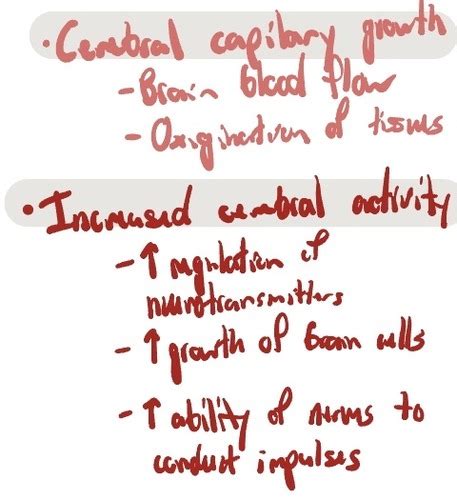 • Cerebral capilary growth
- Brain blood flow
- Oxigination of tissues
• Increased cerebral activity
- ↑ regulation of
neurotransmitters
- ↑ growth of brain cells
- ↑ ability of nerves to
conduct impulses